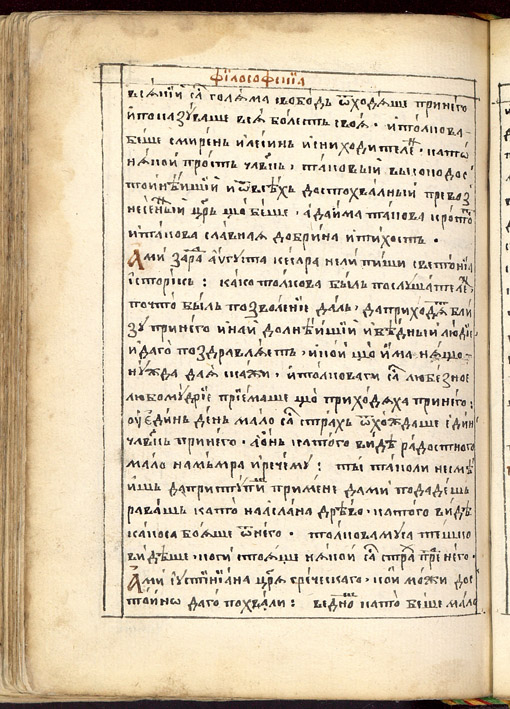 философскиїа
всѧкїй са голѧма свободь ѿходѧше при него
и показуваше всѧ болесть своѧ · и толкова
беше смирень и лесинь и снисходителенъ · като
нѧкой прость чл҃вкь, таковый высокодос
тойнѣйшїй и ѿ всѣхъ достохвалный превоз
несенный цр҃ь що беше, а да има такова кротость
и такова славнаѧ добрина и тихость ·
Ами зара аѵгуста кесарѧ нели пиши светонїа
їсторикь : како толкова быль послушателенъ
почто быль позволенїе даль, да приходѧтъ бли
зу при него и най долнѣйшїй и бѣдный людїе,
и да го поздравлѧеть, и кой що има нѧщо
нужда да ѧ скажи, и толковаги са любезное
любомудрїе прїемаше що приходѧха при него :
оу единь день мало са страхъ ѿхождаше единь
чл҃вкь при него · а онь като го видѣ радостного
мало намѣра и рече му : ты таколи не смѣ
ишь да приступишь при мене да ми подадешь
равашь като на слана дрѣво · като го видѣ
какоса бояше ѿ него · толкова му са тешко
видѣше · кога стоѧше нѧкой са страхъ пре него ·
Ами їустїнїана царѧ греческаго, кой можи дос
тойнѡ да го похвали : веднож като беше мало